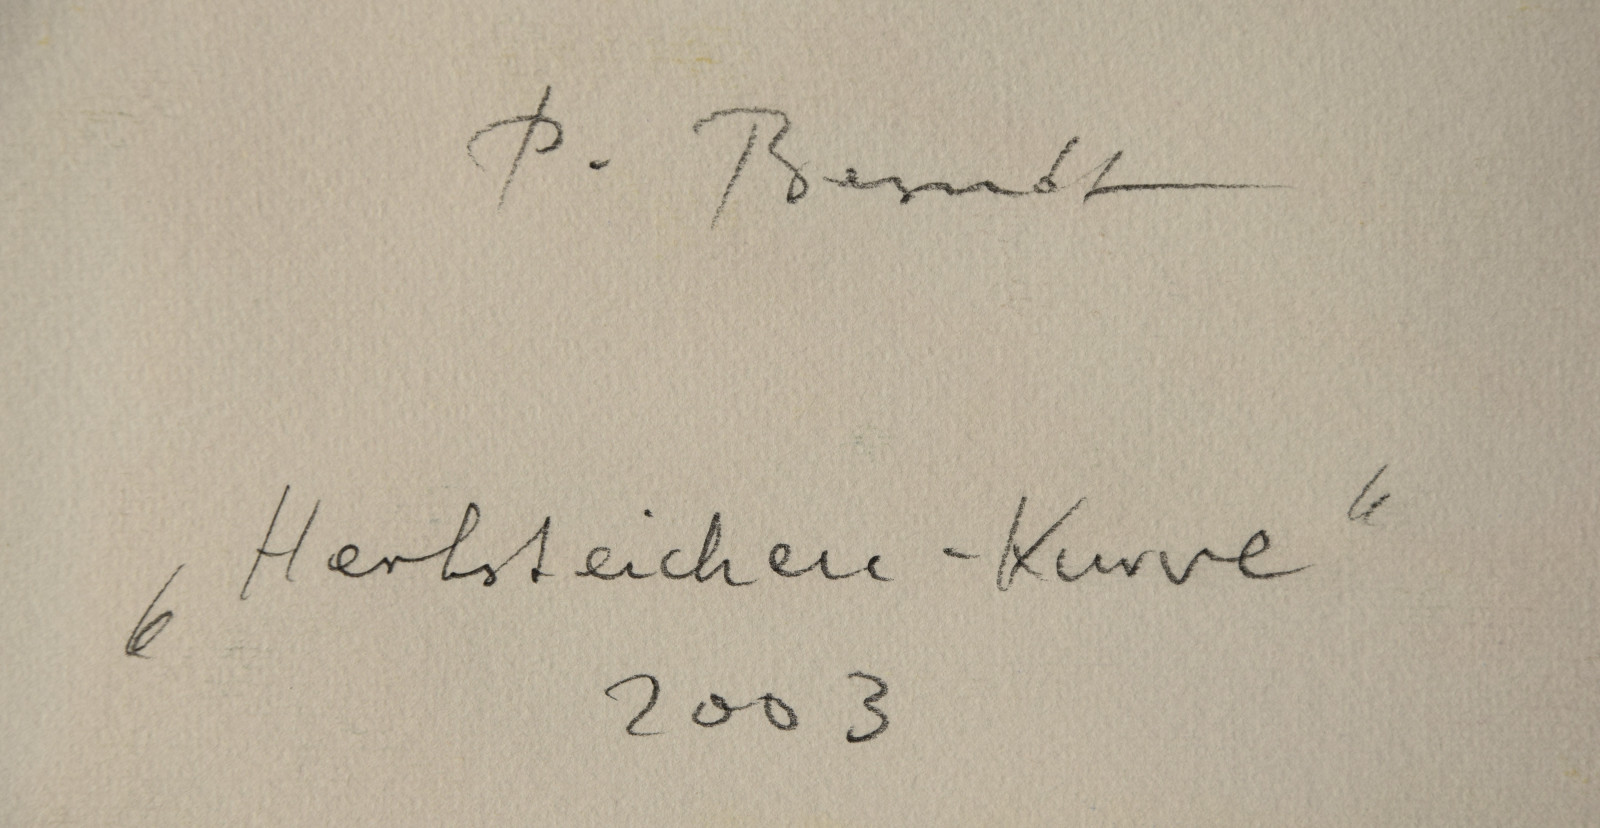 P. Berndt
„Herbsteichen-Kurve“
2003